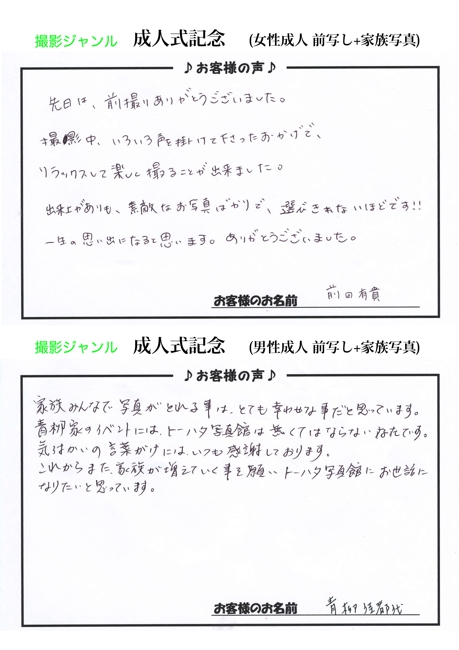 撮影ジャンル 成人式記念 (女性成人 前写し+家族写真)
♪お客様の声♪
先日は、前撮りありがとうございました。
撮影中、いろいろ声を掛けて下さったおかげで、
リラックスして楽しく撮ることが出来ました。
出来上がりも、素敵なお写真ばかりで、選びきれないほどです!!
一生の思い出になると思います。ありがとうございました。
お客様のお名前 前田有貴
撮影ジャンル 成人式記念 (男性成人 前写し+家族写真)
♪お客様の声♪
家族みんなで写真がとれる事は、とても幸わせな事だと思っています。
青柳家のイベントには、トーハタ写真館は無くてはならないねたです。
気づかいの言葉がけには、いつも感謝しております。
これからまた、家族が増えていく事を願い トーハタ写真館にお世話に
なりたいと思っています。
お客様のお名前 青柳佳都代